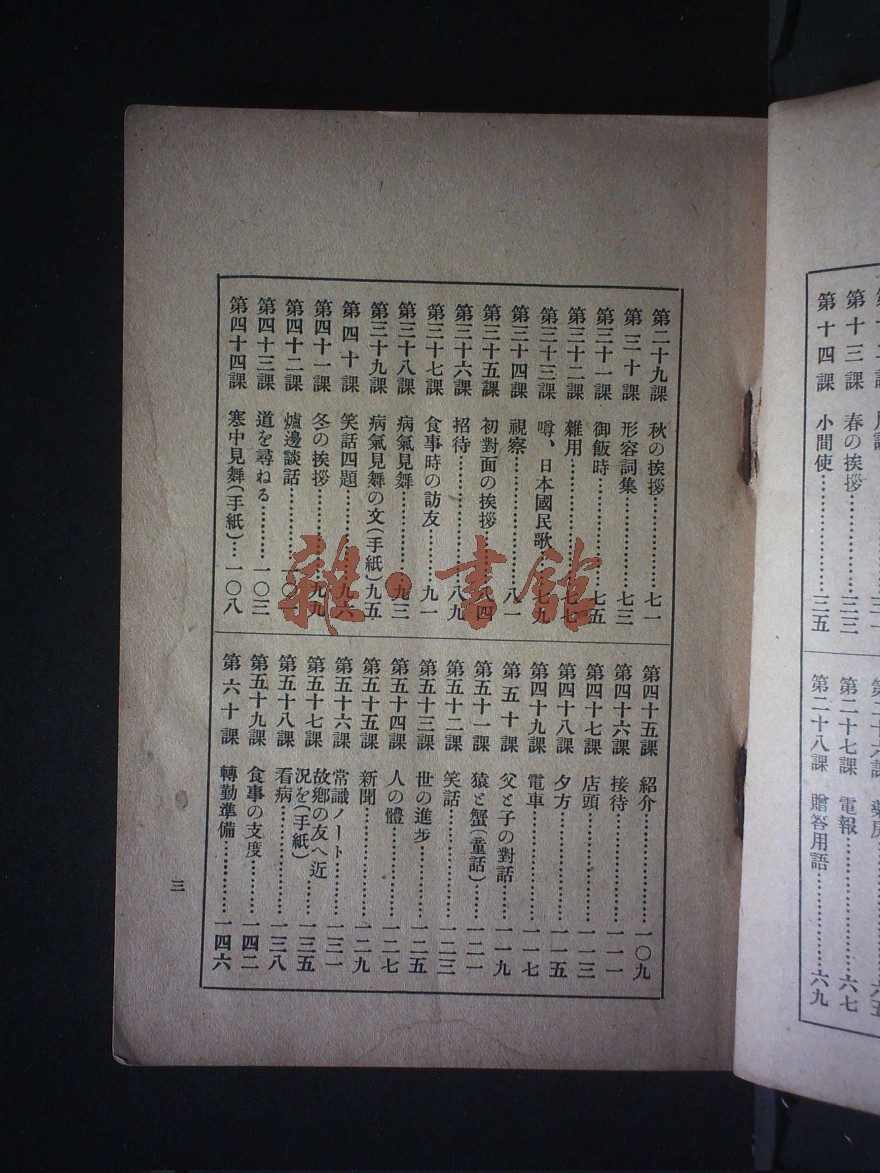 第十三課 春の挨拶……三三
第十四課 小間使……三五
第二十七課 電報……六七
第二十八課 贈答用語……六九
第二十九課 秋の挨拶……七一
第三十課 形容詞集……七三
第三十一課 御飯時……七五
第三十二課 雜用……七七
第三十三課 噂、日本國民歌……七九
第三十四課 視察……八一
第三十五課 初對面の挨拶……八四
第三十六課 招待……八九
第三十七課 食事時の訪友……九一
第三十八課 病氣見舞……九三
第三十九課 病氣見舞の文(手紙)九五
第四十課 笑話四題……九六
第四十一課 冬の挨拶……九九
第四十二課 爐邊談話……
第四十三課 道を尋ねる……一〇三
第四十四課 寒中見舞(手紙)…一〇八
第四十五課 紹介……一〇九
第四十六課 接待……一一一
第四十七課 店頭……一一三
第四十八課 夕方……一一五
第四十九課 電車……一一七
第五十課 父と子の對話……一一九
第五十一課 猿と蟹(童話)……一二一
第五十二課 笑話……一二三
第五十三課 世の進步……一二五
第五十四課 人の體……一二七
第五十五課 新聞……一二九
第五十六課 常識ノート……一三一
第五十七課 故鄕の友へ近
況を(手紙)……一三五
第五十八課 看病……一三八
第五十九課 食事の支度……一四二
第六十課 轉勤準備……一四六
三
雜·書館